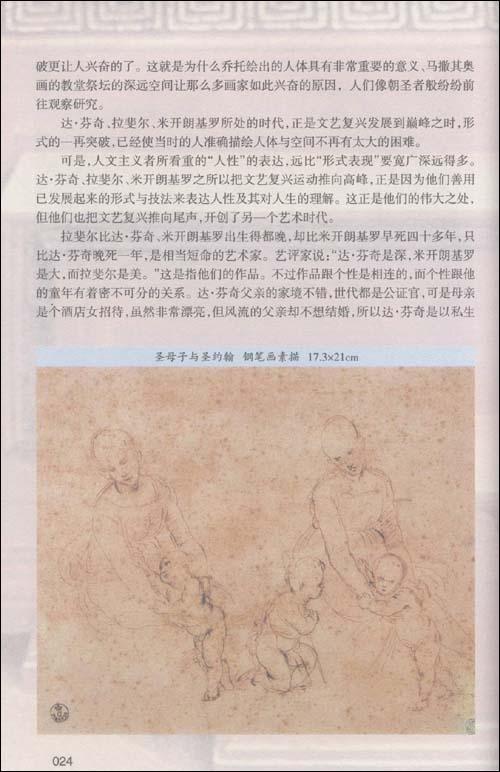 破更让人兴奋的了。这就是为什么乔托绘出的人体具有非常重要的意义、马撒其奥
画的教堂祭坛的深远空间让那么多画家如此兴奋的原因，人们像朝圣者般纷纷前
往观察研究。
达·芬奇、拉斐尔、米开朗基罗所处的时代，正是文艺复兴发展到巅峰之时，形
式的一再突破，已经使当时的人准确描绘人体与空间不再有太大的困难。
可是，人文主义者所看重的“人性”的表达，远比“形式表现”要宽广深远得多。
达·芬奇、拉斐尔、米开朗基罗之所以把文艺复兴运动推向高峰，正是因为他们善用
已发展起来的形式与技法来表达人性及其对人生的理解。这正是他们的伟大之处，
但他们也把文艺复兴推向尾声，开创了另一个艺术时代。
拉斐尔比达·芬奇、米开朗基罗出生得都晚，却比米开朗基罗早死四十多年，只
比达·芬奇晚死一年，是相当短命的艺术家。艺评家说：“达·芬奇是深，米开朗基罗
是大，而拉斐尔是美。”这是指他们的作品。不过作品跟个性是相连的，而个性跟他
的童年有着密不可分的关系。达·芬奇父亲的家境不错，世代都是公证官，可是母亲
是个酒店女招待，虽然非常漂亮，但风流的父亲却不想结婚，所以达·芬奇是以私生
圣母子与圣约翰 钢笔画素描 17.3×21cm
024